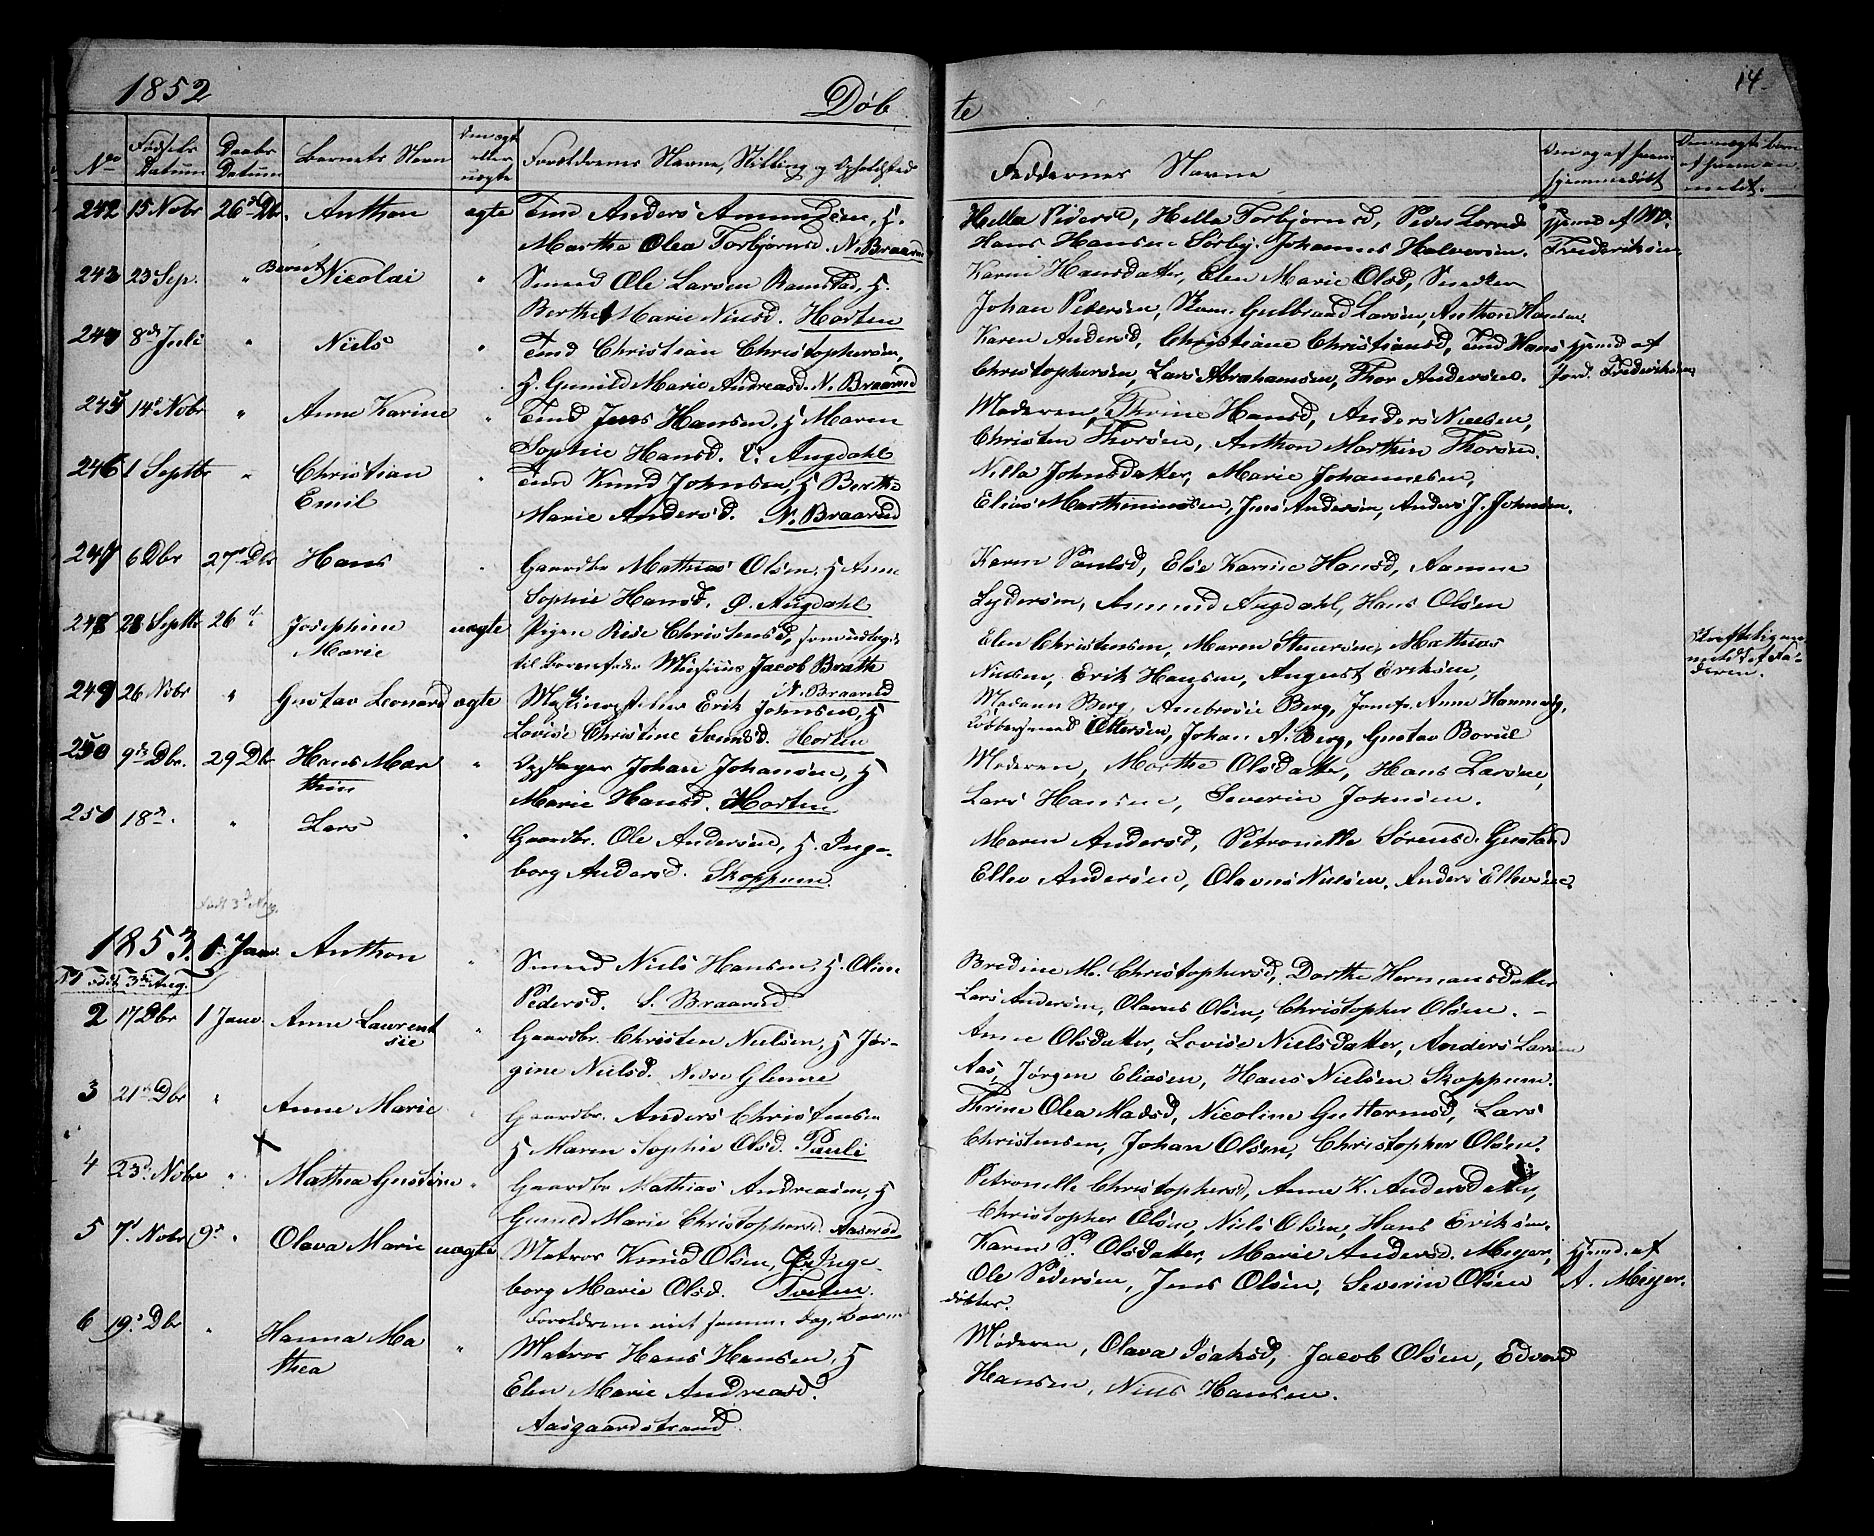 1852
Døb
te
14
No
Fødsels Datum
Daabs Datum
Barnets Navn
Om ægte eller uægte
Forældrenes Navne, Stilling og Opholdsted
Faddernes Navne
242 15 Nobr 26 Dbr. Anthon ægte Tmd Anders Amundsen, H.
Marthe Olea Torbjørnsd. N. Braarud
Hella Pedersd, Hella Torbjørnsd, Peder
Hans Hansen Sørby. Johannes Halvorsen.
Hjemd af
Frederiksen
243 23 Sep. " Bernt Nicolai " Smed Ole Larsen Ramstad, H.
Berthe Marie Nielsd. Horten
Karen Hansdatter, Elen Marie Olsd, Snecker
Johan Pedersen, Gulbrand Larsen, Anthon Hansen
244 8de Juli " Niels " Tmd Christian Christophersen,
H. Gunild Marie Andreasd. N. Braarud
Karen Andersd, Christiane Christiansd, Tmd Hans
Christophersen, Lars Abrahamsen, Thor Andersen.
Hjemd af
Jord. Frederiksen
245 14 Nobr " Anne Karine " Tmd Jens Hansen, H Maren
Sophie Hansd. Augdahl
Moderen, Thrine Hansd, Anders Nielsen,
Christen Thorsen, Anthon Marthin Thorsen.
246 1 Septbr " Christian Emil " Tmd Knud Johnsen, H Berthe
Marie Andersd. N. Braarud
Nilla Johnsdatter, Marie Johannesen,
Elias Marthiniussen, Jens Andersen, Anders J. Johnsen.
247 6 Dbr 27 Dbr Hans " Gaardbr Mathias Olsen, H Anne
Sophie Hansd. Ø. Augdahl
Karen Paulsd, Else Karine Hansd,
Lydersen, Amund Augdahl, Hans Olsen
248 28 Septbr 26 Josephine Marie uægte Pigen Christensd, som udlagde
til Barnefader Jacob Brathe
N. Braarud
Elen Christensen, Maren Mathias
Nielsen, Erik Hansen, August Eriksen,
Skriftlig an-
meldt af Fa-
deren.
249 26 Nobr " Gustav Leonard ægte Erik Johnsen, H
Lovise Christine Svendsd. Horten
Madam Berg, Ambrosie Berg, Jomfr. Anne
Kobbersmed Ottersen, Johan A. Berg, Gustav
250 9de Dbr. 29 Dbr Hans Mar
thin " Opsynsmand Johan Johansen, H
Marie Hansd. Horten
Moderen, Marthe Olsdatter, Hans Larsen,
Lars Hansen, Severin Johnsen.
251 18de " Lars " Gaardbr. Ole Andersen, H. Inge-
borg Andersd. Skoppum
Maren Andersd, Petronelle Sørensd.
Ellev Andersen, Olavus Nielsen, Anders Ellevsen
Født 3 Aug.
1853. 1 Janr. Anthon " Smed Niels Hansen, H. Oline
Pedersd. S. Braarud
Bredine M. Christophersd, Dorthe Hermansdatter
Lars Andersen, Olavus Olsen, Christopher Olsen. –
No 1 Født 3 Aug.
2 17 Dbr 1 Janr. Anne Laurent
sie " Gaardbr. Christen Nielsen, H Jør-
gine Nielsd. Nedre Glenne
Anne Olsdatter, Lovise Nielsdatter, Anders Larsen
Aas, Jørgen Eliasen, Hans Nielsen Skoppum.
3 21 Dbr " Anne Marie " Gaardbr. Anders Christensen
H Maren Sophie Olsd. Pauli
Thrine Olea Madsd, Nicoline Guttormsd, Lars
Christensen, Johan Olsen, Christopher Olsen.
4 23 Nobr " Mathea Gustine " Gaardbr Mathias Andreasen, H
Gunild Marie Christophersd. Aaserød
Petronelle Christophersd, Anne K. Andersdatter,
Christopher Olsen, Niels Olsen, Hans Eriksen.
5 7 Nobr 9 " Olava Marie uægte Matros Knud Olsen, P. Inge-
borg Marie Olsd. Tveten.
Forældrene viet samme Dag, Barnet
døbtes.
Karen P. Olsdatter, Marie Andersd. Meyer,
Ole Pedersen, Jens Olsen, Severin Olsen
Hjemd. af
A. Meyer.
6 19 Dbr " Hanna Ma
thea " Matros Hans Hansen, H
Elen Marie Andreasd.
Aasgaardstrand
Moderen, Olava Isaksd, Jacob Olsen, Edvard
Hansen, Niels Hansen.